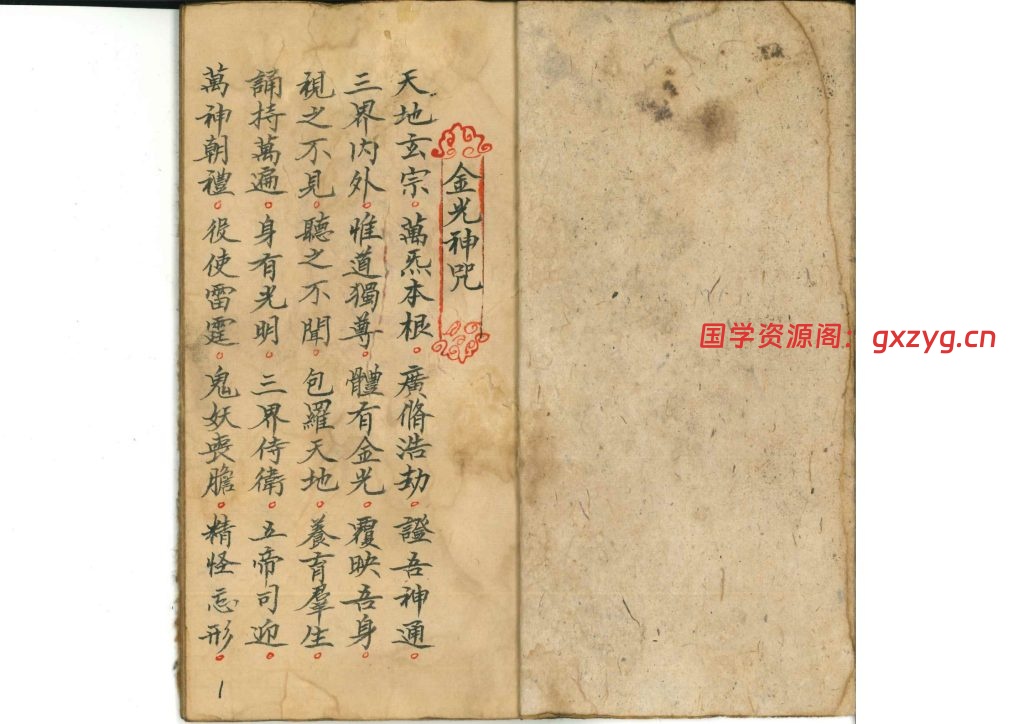 金光神咒
天地玄宗。萬炁本根。廣脩浩劫。證吾神通。
三界内外。惟道獨尊。體有金光。覆映吾身。
視之不見。聽之不聞。包羅天地。養育羣生。
誦持萬遍。身有光明。三界侍衛。五帝司迎。
萬神朝禮。役使雷霆。鬼妖喪膽。精怪忘形。
1
国学资源阁：gxzyg.cn